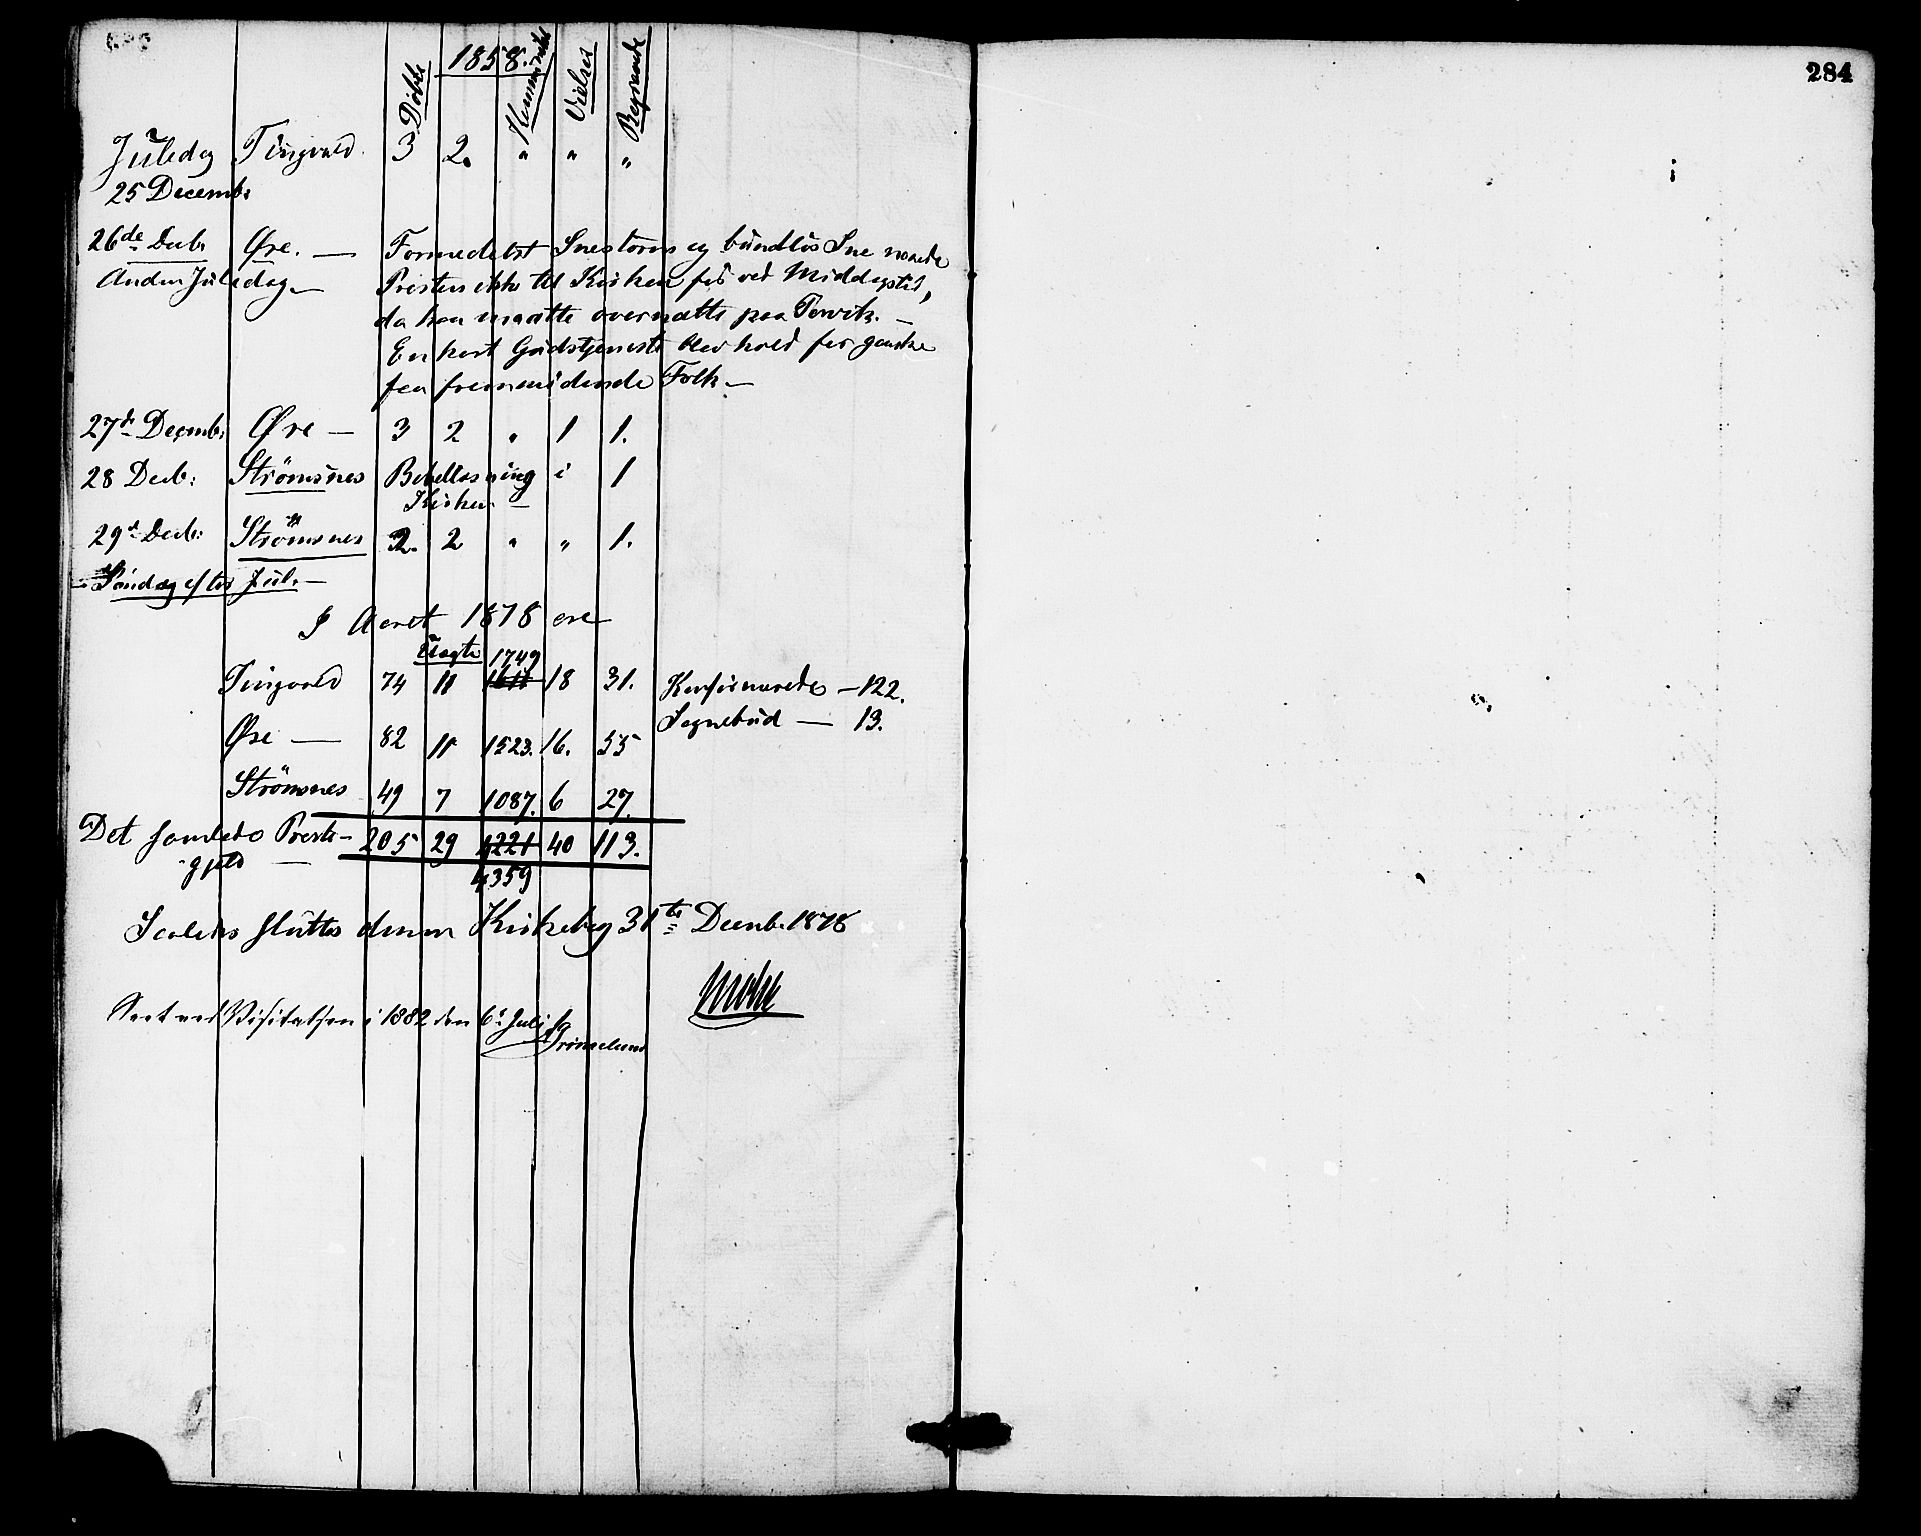 284
1858.
Döbte Kommunikt Vielser Begravede
Juledag Tingvold 3 2. " " "
25 Decemb:
26de Decb: Øre. — Formedelst Snestorm og bundløs Sne naaede
Anden Juledag — Presten ikke til Kirken før ved Middagstid,
da han maatte overnatte paa Torvik. —
En kort Gudstjeneste blev hold for ganske
faa fremmødende Folk —
27de Decemb: Øre — 3 2 " 1 1.
28 Decb: Strömsnes Bibellæsning i 1
Kirken —
29de Decb: Strömsnes 2. 2 " " 1.
— Söndag efter Jul. —
I Aaret 1878 ere
Uægte 1749
Tingvold 74 11 1611 18 31. Konfirmerede — 122.
Sognebud — 13.
Øre — 82 11 1523. 16. 55
Strömsnes 49 7 1087. 6 27.
Det samlede Preste- 205 29 4221 40 113.
-gjeld — 4359
Saaledes sluttes denne Kirkebog 31te Decemb. 1878
Seet ved Visitatsen i 1882 den 6te Juli
Grimelund